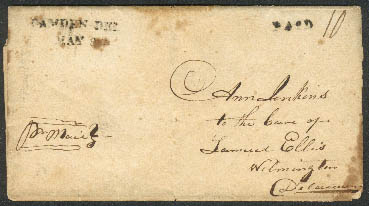 CAMDEN DEL
MAY
PAID
10
Ann Jenkins
to the Care of
Samuel Ellis
Wilmington
Delaware
Pr Mail